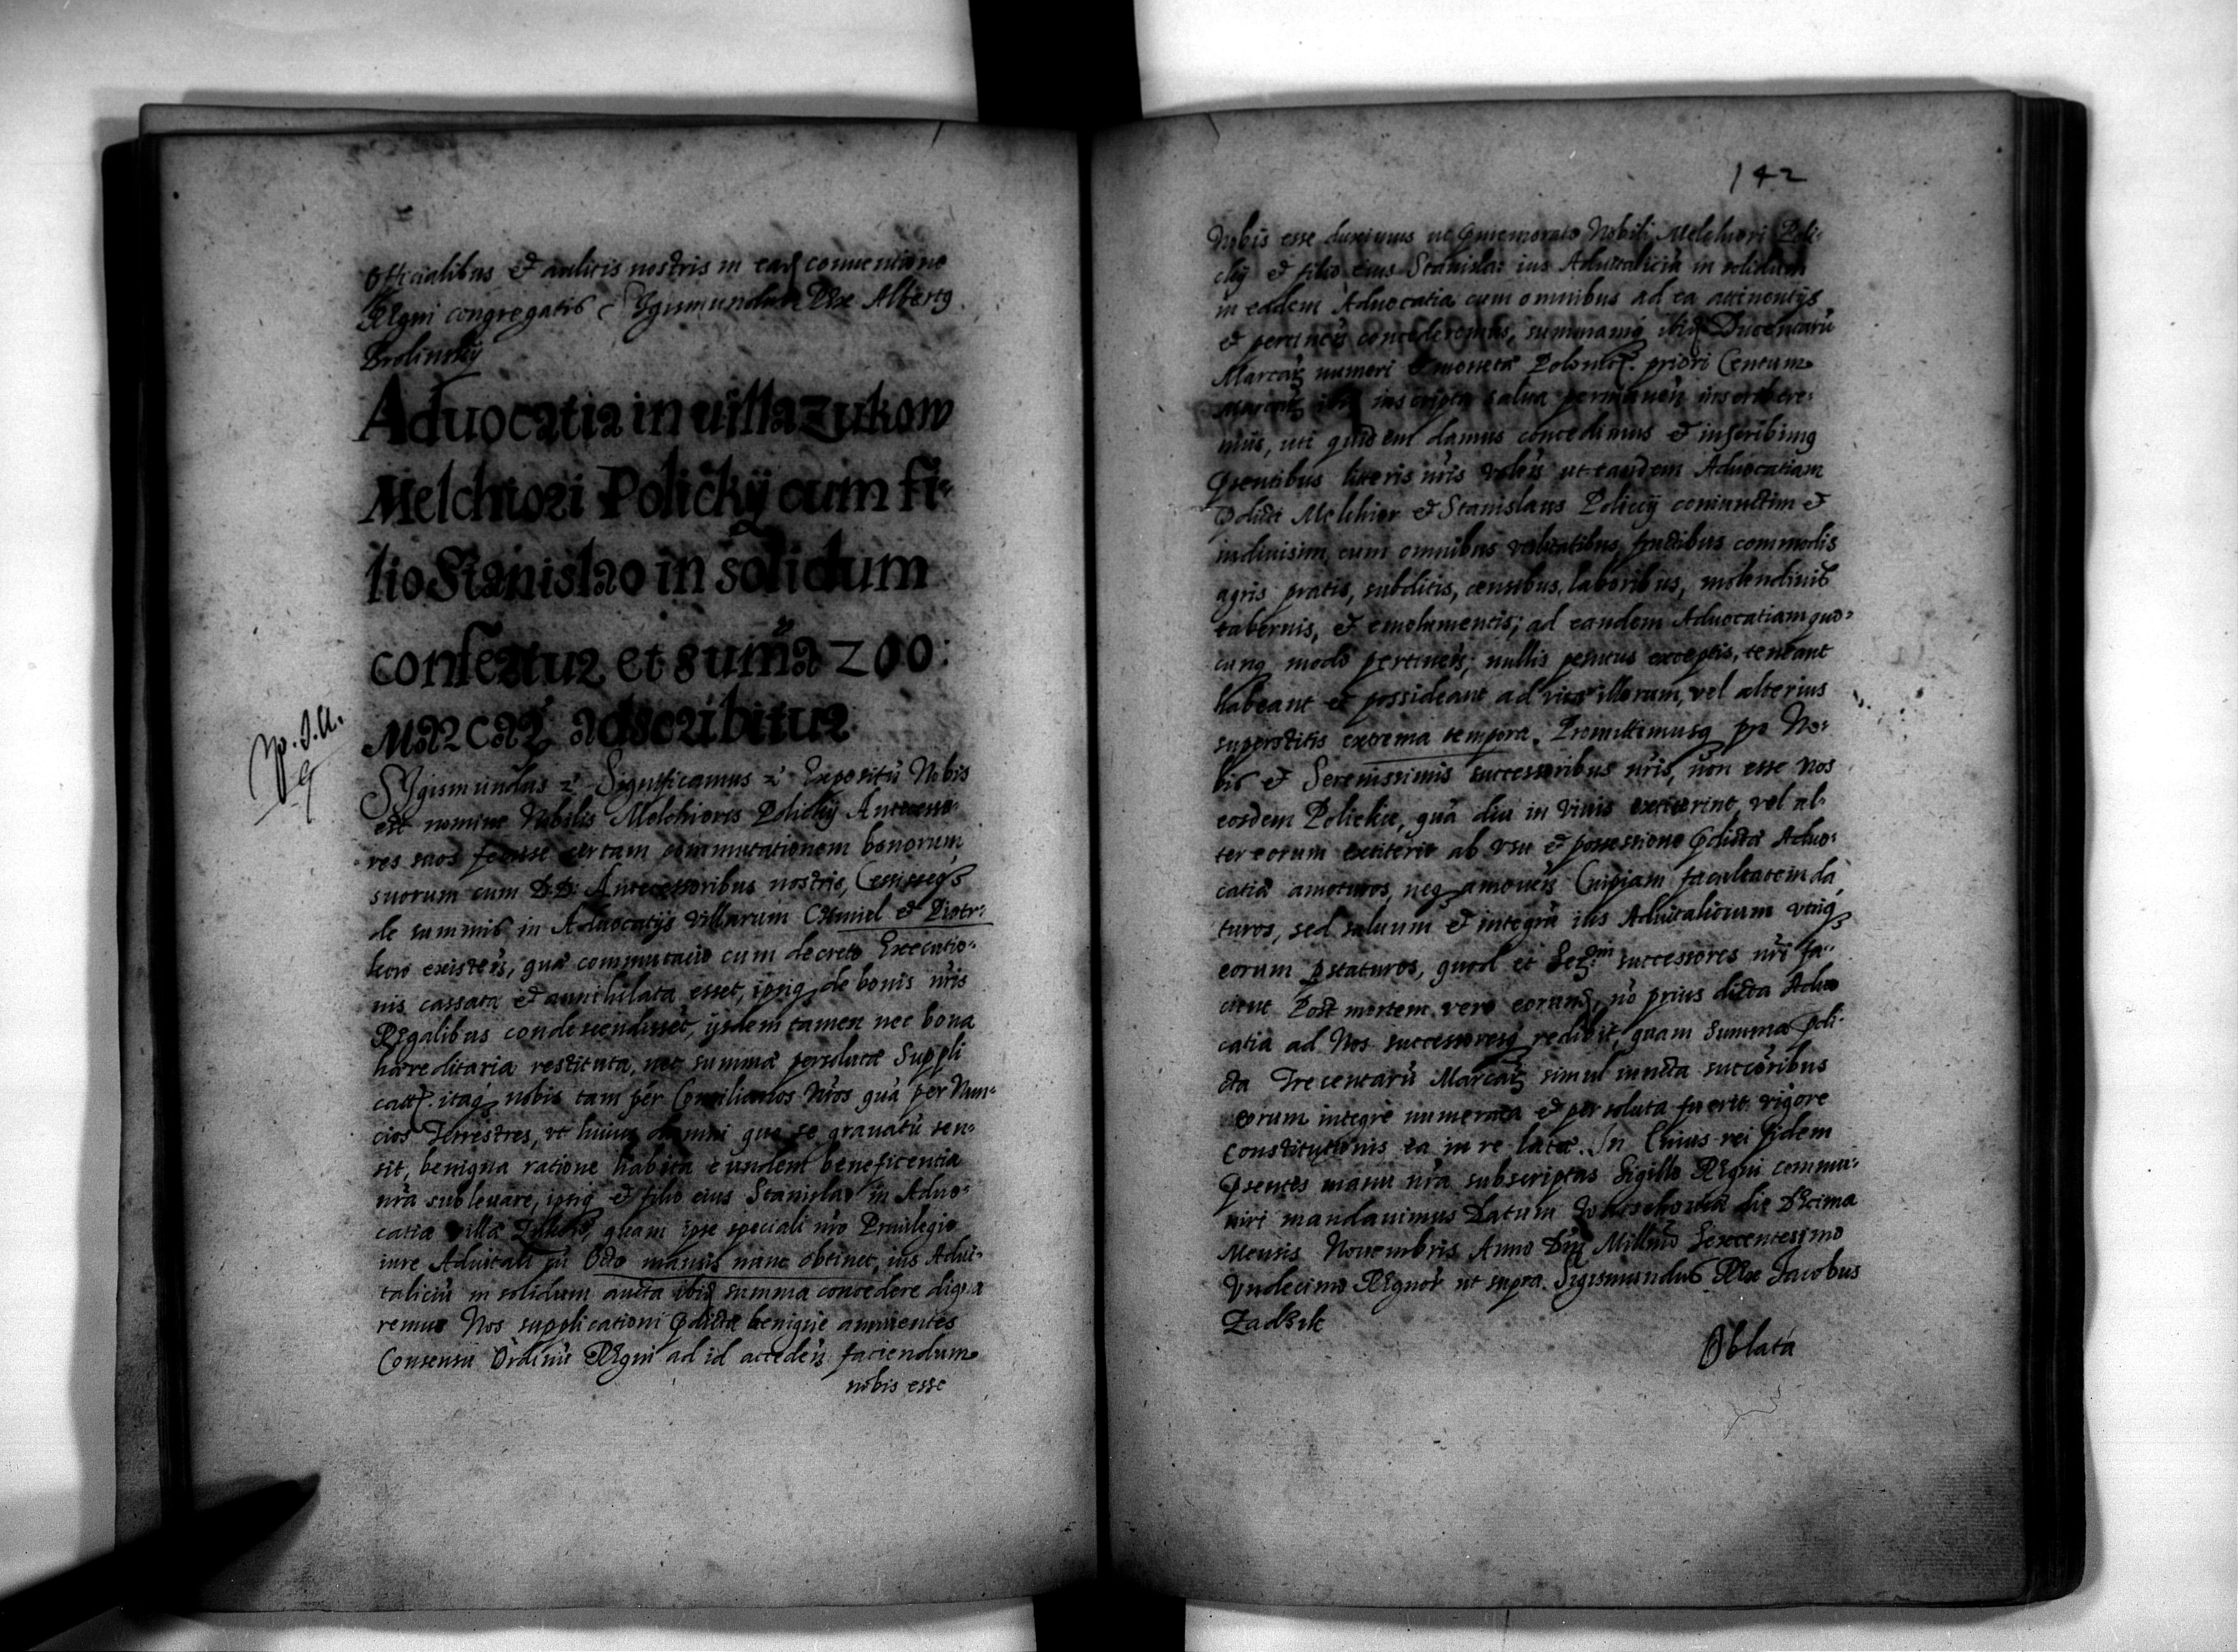 Officialibus et aulicis nostris in eadꝫ conuentione
Regni congregatis Sygismundus Rex Albertꝰ
Brolinsky
Aduocatia in uilla Zukow
Melchiori Policky cum fi-
lio Stanislao in solidum
confertur et sum̃a 200:
Marcaꝝ adscribitur
Sygismundus ꝛc Significamus ꝛc Expositũ Nobis
est nomine Nobilis Melchioris Policky Antecesso-
res suos fecisse certam commutationem bonorum
suorum cum D.D. Antecessoribus nostris, Cessissegꝫ
de summis in Aduocatijs villarum Chmiel et Piotr-
kow existeñ, quæ commutatio cum decreto Executio-
nis cassata et annihilata esset, ipsiqꝫ de bonis nr̃is
Regalibus condescendisset, ijsdem tamen nec bona
hæreditaria restituta, nec summæ persolutæ Suppli
catũ itaqꝫ nobis tam per Consiliarios Nr̃os quã per Nun-
cios Terrestres, vt huius damni quo se grauatũ sen-
sit, benigna ratione habita eundem beneficentia
nr̃a subleuare, ipsiqꝫ et filio eius Stanislao in Aduo-
catia villæ Zukow, quam ipse speciali nr̃o Priuilegio
iure Aduitali cũ Octo mansis nunc obtinet, ius Adui-
taliciũ in solidum aucta ibidꝫ summa concedere digna
remur Nos supplicationi p̃dictæ benigne annuentes
Consensu Ordinũ Regni ad id accedeñ faciendum
nobis esse
142
Nobis esse duximus ut p̃memorato Nobili Melchiori Poli-
cky et filio eius Stanislao ius Aduitaliciũ in solidum
in eadem Aduocatia cum omnibus ad ea attinentijs
et pertineñ concederemus, summamqꝫ ibidꝫ Ducentarũ
Marcaꝝ numeri et monetæ Polonicæ priori Centum
Marcaꝝ ibi inscripta salua permaneñ inscribere-
mus, uti quidem damus concedimus et inscribimꝰ
p̃sentibus literis nr̃is voleñ ut eandem Aduocatiam
p̃dicti Melchior et Stanislaus Policcy coniunctim et
indiuisim cum omnibus vtilitatibus fructibus commodis
agris pratis, subditis, censibus, laboribus, molendinis
tabernis, et emolumentis; ad eandem Aduocatiam quo-
cunqꝫ modo pertineñ; nullis penitus exceptis, teneant
habeant et possideant ad vitæ illorum, vel alterius
superstitis extrema tempora. Promittimusqꝫ pro No-
bis et Serenissimis successoribus nr̃is, non esse nos
eosdem Polickie, quã diu in viuis extiterint, vel al-
ter eorum extiterit ab vsu et possessione p̃dictæ Aduo-
catiæ amoturos, neqꝫ amoueñ Cuipiam facultatem da
turos, sed saluum et integrũ ius Aduitalicium vtriqꝫ
eorum p̃staturos, quod et Seꝝ.mi successores nr̃i fa-
cient Post mortem vero eorundꝫ, nõ prius dicta Aduo
catia ad Nos successoresqꝫ redibit, quam Summa p̃di-
cta Trecentarũ Marcaꝝ simul iuncta succõribus
eorum integre numerata et persoluta fuerit. vigore
Constitutionis ea in re latæ. In Cuius rei fidem
p̃sentes manu nr̃a subscriptas Sigillo Regni commu-
niri mandauimus Datum die Decima
Mensis Nouembris Anno Dñi Millmõ Sexcentesimo
Vndecimo Regnoꝝ ut supra. Sigismundus Rex Jacobus
Zadzik
Oblata